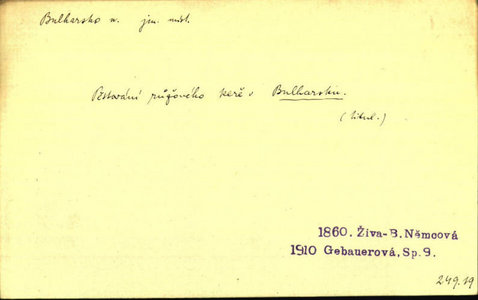 Bulharsko n. jm. míst.
Pěstování růžového keře v Bulharsku.
(titul.)
1860. Živa-B. Němcová
1910 Gebauerová, Sp. 9.
249.19